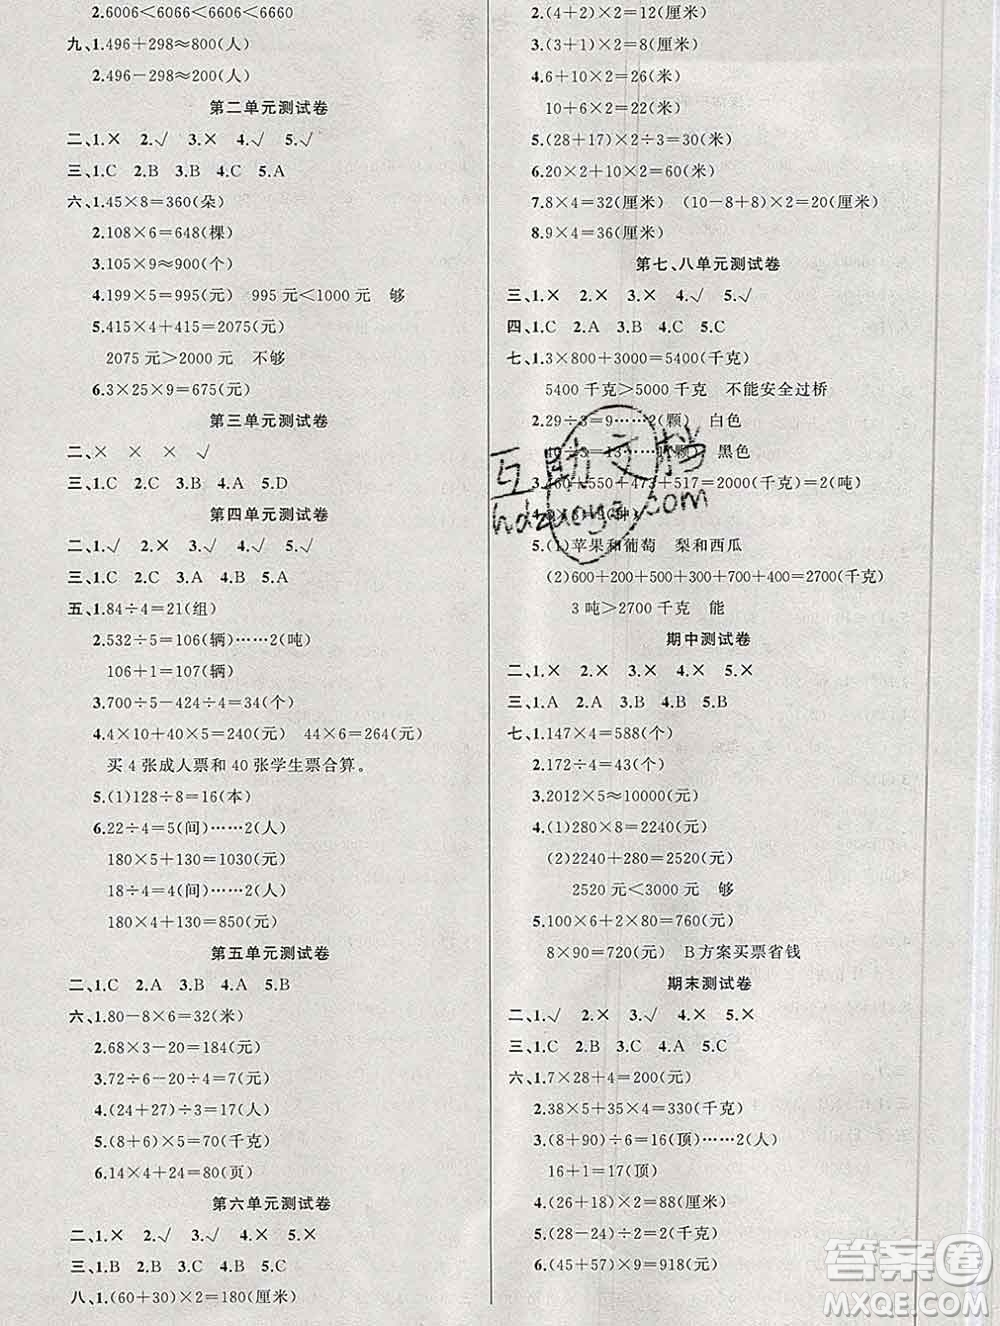 2.6006＜6066＜6606＜6660
九、1.496＋298≈800(人)
2.496－298≈200(人)
第二单元测试卷
二、1.× 2.√ 3.× 4.√ 5.√
三、1.C 2.B 3.B 4.C 5.A
六、1.45×8＝360(朵)
2.108×6＝648(棵)
3.105×9≈900(个)
4.199×5＝995(元) 995元＜1000元 够
5.415×4＋415＝2075(元)
2075元＞2000元 不够
6.3×25×9＝675(元)
第三单元测试卷
二、× × × √
三、1.C 2.B 3.A 4.A 5.D
第四单元测试卷
二、1.√ 2.× 3.× 4.√ 5.√
三、1.C 2.C 3.B 4.A 5.A
五、1.84÷4＝21(组)
2.532÷5＝106(辆)……2(吨)
106＋1＝107(辆)
3.700÷5－424÷4＝34(个)
4.4×10＋40×5＝240(元) 44×6＝264(元)
买4张成人票和40张学生票合算。
5.(1)128÷8＝16(本)
6.22÷4＝5(间)……2(人)
180×5＋130＝1030(元)
18÷4＝4(间)……2(人)
180×4＋130＝850(元)
第五单元测试卷
二、1.C 2.A 3.B 4.A 5.B
六、1.80－8×6＝32(米)
2.68×3－20＝184(元)
3.72÷6－7＝5(元)
4.(24＋27)÷3＝17(人)
5.(8＋6)×5＝70(千克)
6.14×4＋24＝80(页)
第六单元测试卷
二、1.× 2.√ 3.× 4.× 5.×
三、1.B 2.B 3.C 4.B 5.A
八、1.(60＋30)×2＝180(厘米)
2.(4＋2)×2＝12(厘米)
3.(3＋1)×2＝8(厘米)
4.6＋10×2＝26(米)
10＋6×2＝22(米)
5.(28＋17)×2÷3＝30(米)
6.20×2＋10×2＝60(米)
7.8×4＝32(厘米) (10－8＋8)×2＝20(厘米)
8.9×4＝36(厘米)
第七、八单元测试卷
三、1.× 2.× 3.× 4.√ 5.√
四、1.C 2.A 3.B 4.C 5.C
七、1.3×800＋3000＝5400(千克)
5400千克＞5000千克 不能安全过桥
2.29÷3＝9……2(颗) 白色
(颗) 黑色
3.460＋550＋473＋517＝2000(千克)＝2(吨)
互助文档
hdzuoye.com
5.(1)苹果和葡萄 梨和西瓜
(2)600＋200＋500＋300＋700＋400＝2700(千克)
3吨＞2700千克 能
期中测试卷
二、1.× 2.× 3.× 4.× 5.×
三、1.A 2.A 3.B 4.B 5.B
七、1.147×4＝588(个)
2.172÷4＝43(个)
3.2012×5≈10000(元)
4.(1)280×8＝2240(元)
(2)2240＋280＝2520(元)
2520元＜3000元 够
5.100×6＋2×80＝760(元)
8×90＝720(元) B方案买票省钱
期末测试卷
二、1.√ 2.× 3.√ 4.× 5.×
三、1.C 2.B 3.C 4.A 5.C
六、1.7×28＋4＝200(元)
2.38×5＋28×5＝330(千克)
3.(8＋90)÷6＝16(顶)……2(人)
16＋1＝17(顶)
4.(26＋18)×2＝88(厘米)
5.(28－24)÷2＝2(千克)
6.(45＋57)×9＝918(元)
答案圈
MXQE.COM